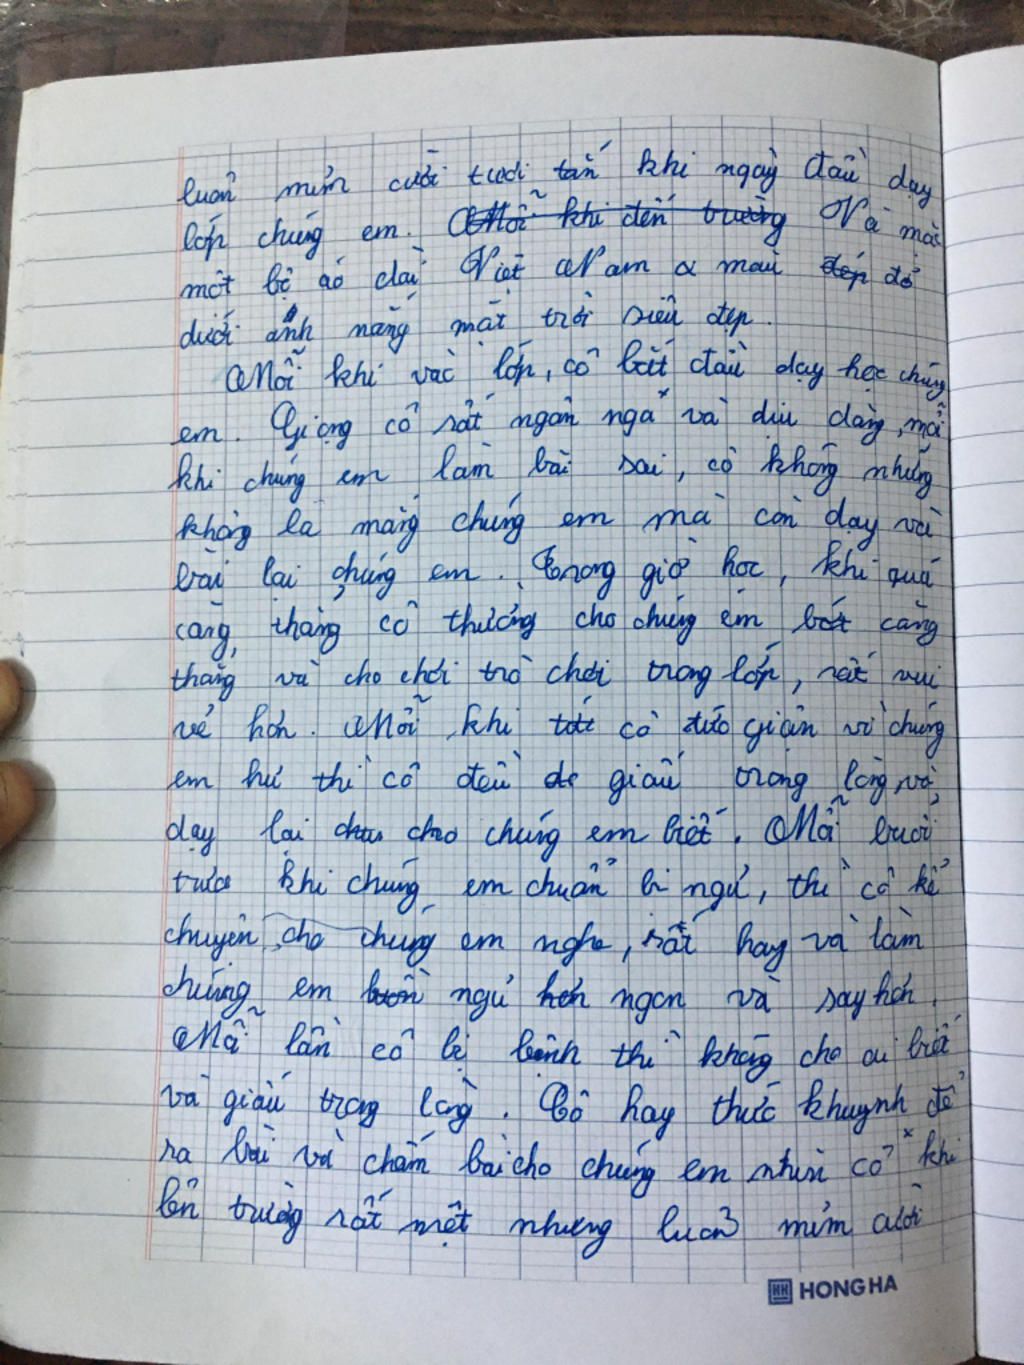 luôn mỉm cười tươi tắn khi ngày đầu dạy
lớp chúng em. Mỗi khi đến trường Và mặc
một bộ áo dài Việt Nam màu đẹp đỏ
dưới ánh nắng mặt trời siêu đẹp.
Mỗi khi vào lớp, cô bắt đầu dạy học chúng
em. Giọng cô rất ngân nga và dịu dàng, mỗi
khi chúng em làm bài sai, cô không những
không la mắng chúng em mà còn dạy và
bài lại chúng em. Trong giờ học, khi quá
căng, thẳng cô thường cho chúng em bớt căng
thẳng và cho chơi trò chơi trong lớp, rất vui
vẻ hơn. Mỗi khi cô tức giận vì chúng
em hư thì cô đều giấu trong lòng và
dạy lại cho chúng em biết. Mỗi buổi
trưa khi chúng em chuẩn bị ngủ, thì cô kể
chuyện cho chúng em nghe, rất hay và làm
chúng em luôn ngủ hơn ngon và say hơn.
Mỗi lần cô bị bệnh thì không cho ai biết
và giấu trong lòng. Cô hay thức khuynh để
ra bài và chấm bài cho chúng em nhìn cô khi
lên trường rất mệt nhưng luôn mỉm cười
HONG HA